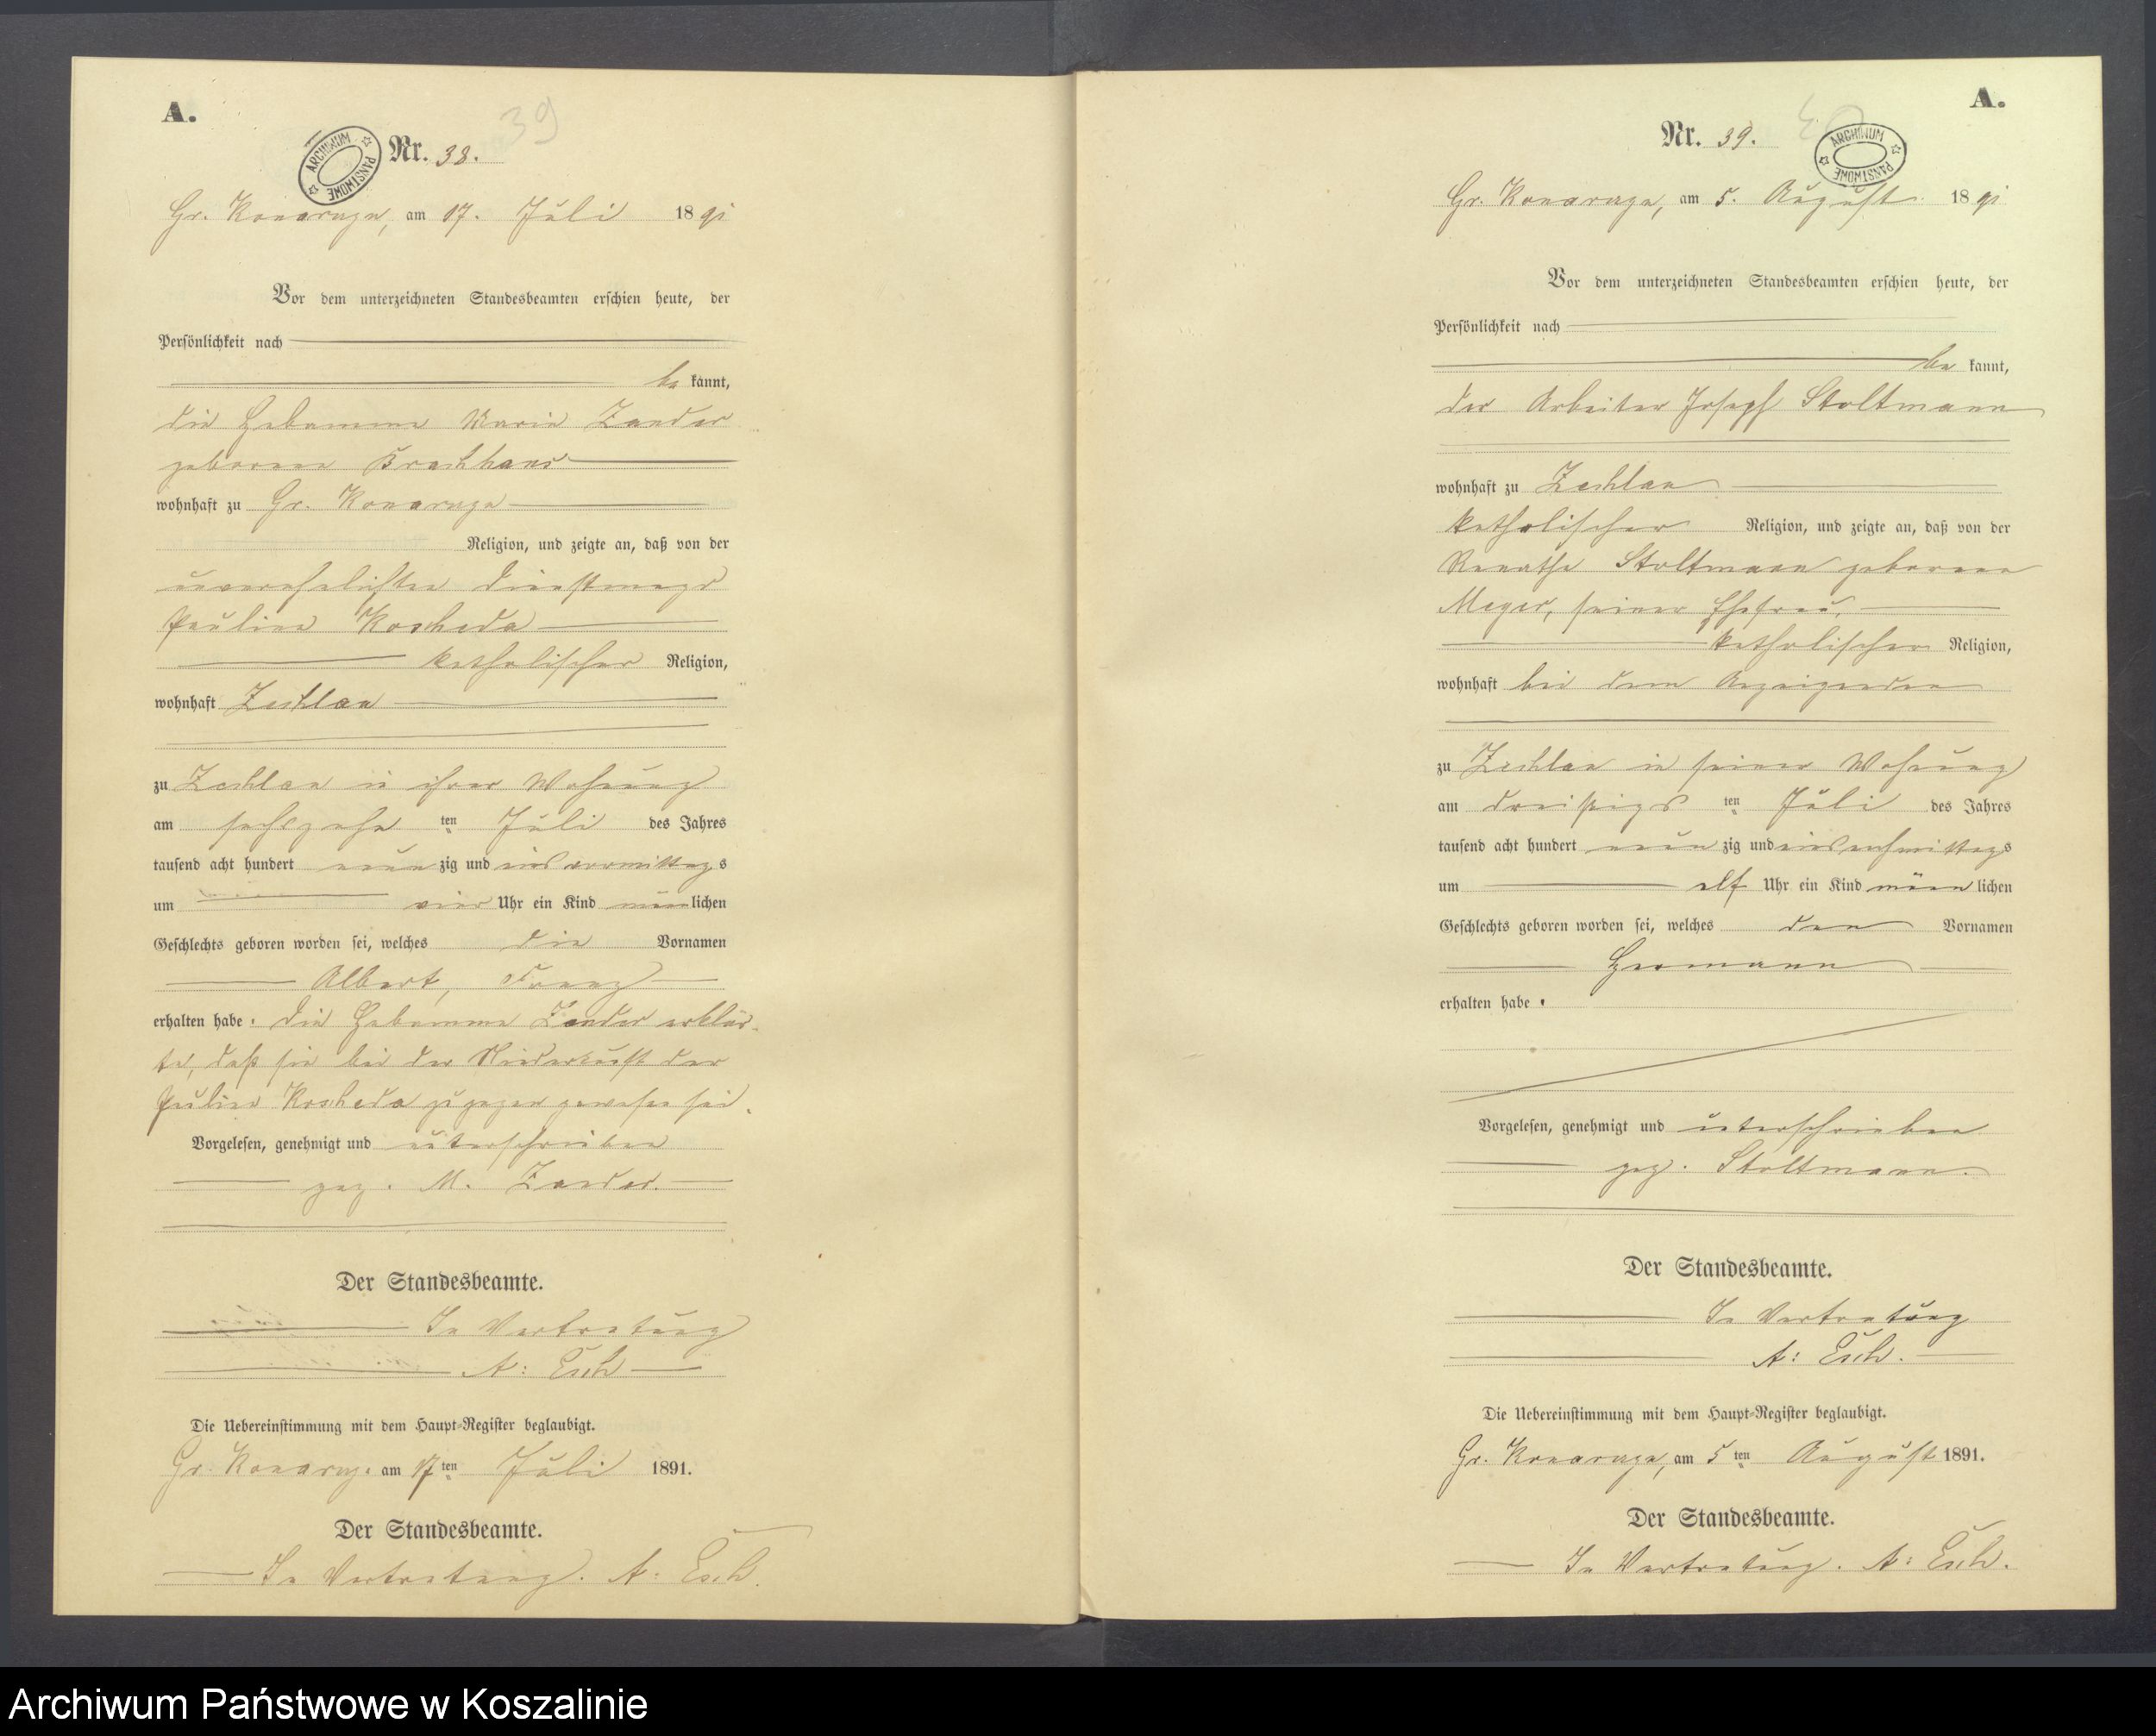 A.
39
ARCHIWUM PAŃSTWOWE
Nr. 38.
Gr. Konarczyn, am 17. Juli 1891
Vor dem unterzeichneten Standesbeamten erschien heute, der
Persönlichkeit nach
be kannt,
die Hebamme Marie Zander
geborene
wohnhaft zu Gr. Konarczyn
Religion, und zeigte an, daß von der
unverehelichten Dienstmagd
Pauline Koscheda
katholischer Religion,
wohnhaft Zechlau
zu Zechlau in ihrer Wohnung
am sechszehn ten Juli des Jahres
tausend acht hundert neun zig und eins vormittags
um vier Uhr ein Kind männlichen
Geschlechts geboren worden sei, welches die Vornamen
Albert, Franz
erhalten habe. Die Hebamme Zander erklär-
te, daß sie bei der Niederkunft der
Pauline Koscheda zugegen gewesen sei.
Vorgelesen, genehmigt und unterschrieben
gez. M. Zander.
Der Standesbeamte.
In Vertretung
A: Esch
Die Uebereinstimmung mit dem Haupt-Register beglaubigt.
Gr. Konarcz. am 17ten Juli 1891.
Der Standesbeamte.
In Vertretung. A: Esch.
A.
40
ARCHIWUM PAŃSTWOWE
Nr. 39.
Gr. Konarczyn, am 5. August 1891
Vor dem unterzeichneten Standesbeamten erschien heute, der
Persönlichkeit nach
be kannt,
der Arbeiter Joseph Stoltmann
wohnhaft zu Zechlau
katholischer Religion, und zeigte an, daß von der
Renathe Stoltmann geborene
Meyer, seiner Ehefrau,
katholischer Religion,
wohnhaft bei dem Anzeigenden
zu Zechlau in seiner Wohnung
am dreißigs ten Juli des Jahres
tausend acht hundert neun zig und eins nachmittags
um elf Uhr ein Kind männ lichen
Geschlechts geboren worden sei, welches den Vornamen
Hermann
erhalten habe.
Vorgelesen, genehmigt und unterschrieben
gez. Stoltmann.
Der Standesbeamte.
In Vertretung
A: Esch.
Die Uebereinstimmung mit dem Haupt-Register beglaubigt.
Gr. Konarczyn, am 5 ten August 1891.
Der Standesbeamte.
In Vertretung. A: Esch.
Archiwum Państwowe w Koszalinie